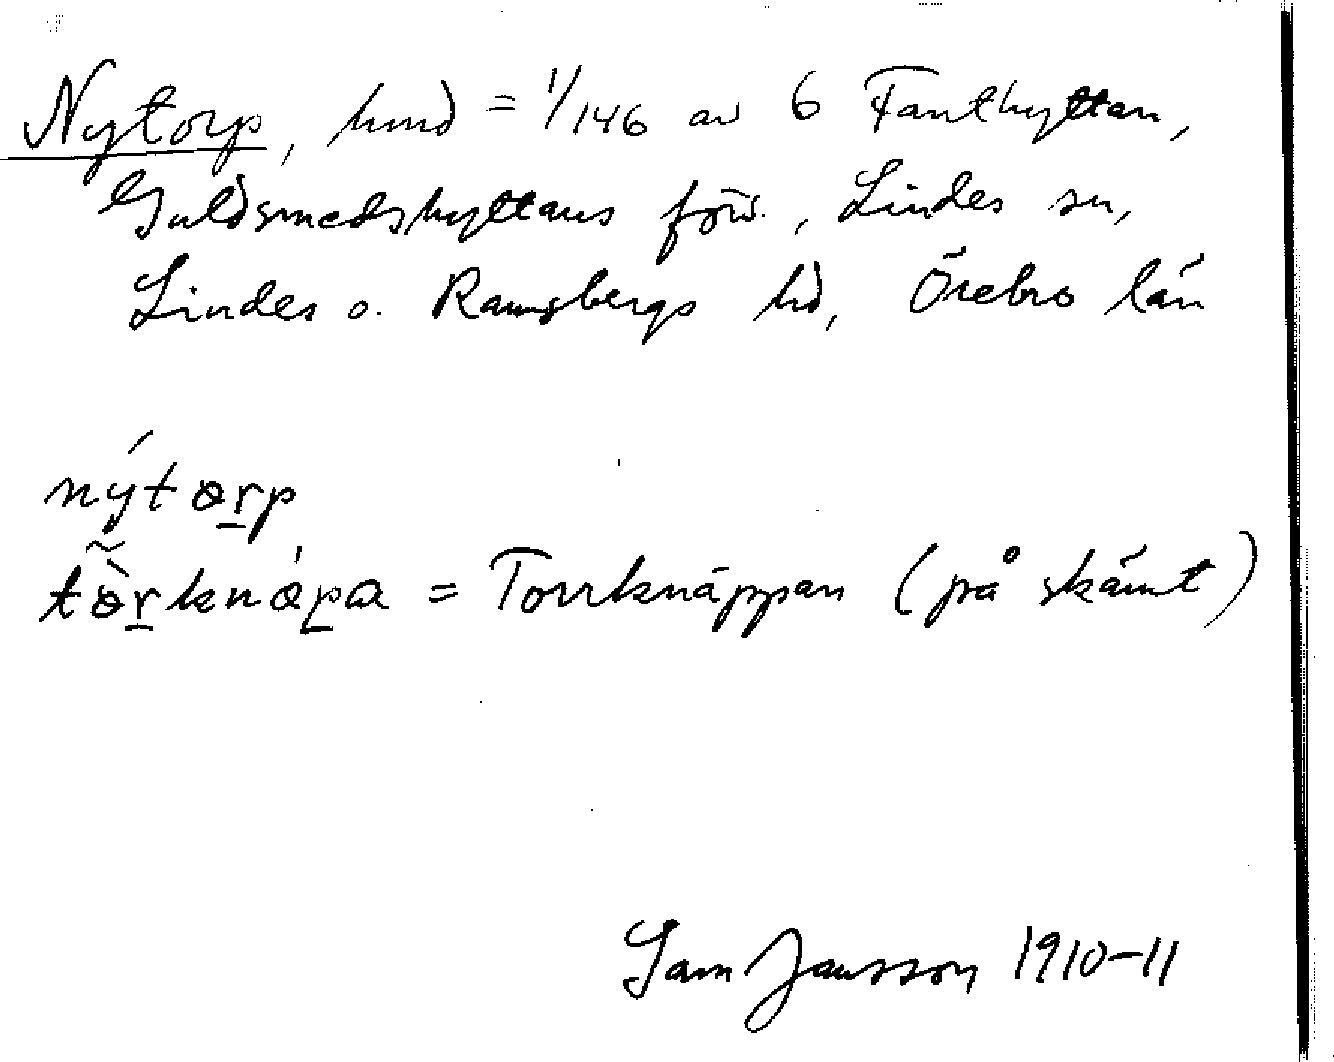 Nytorp, hmd = 1/146 av 6 Fanthyttan,
Guldsmedshyttans förs., Lindes sn,
Lindes o. Ramsbergs hd, Örebro län
nýtɵrp
tɵ̀rknápa = Torrknäppan (på skämt)
Sam Jansson 1910-11